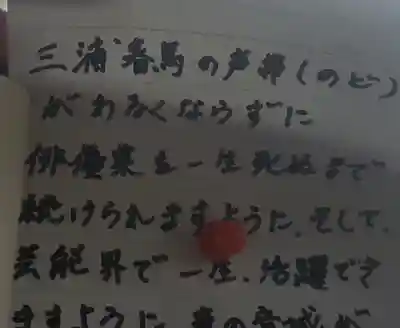 三浦春馬の声帯(のど)
がわるくならずに
俳優業を一生死ぬまで
続けられますように。そして、
芸能界で一生、活躍でき
ますように。